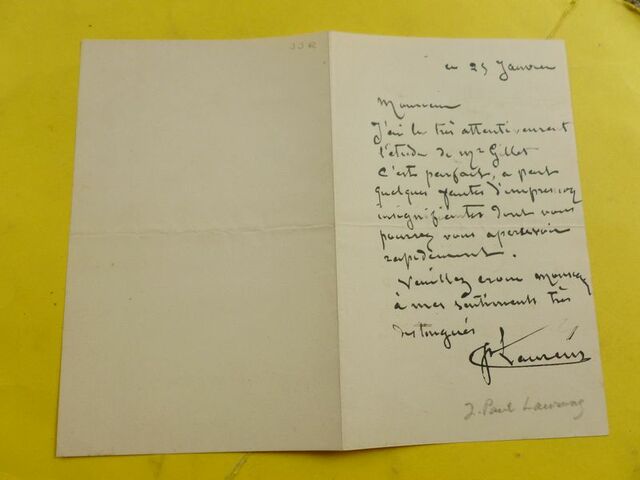 ce 25 Janvier
Monsieur
J'ai lu très attentivement
l'étude de Mr Gillet
C'est parfait, a part
quelques fautes d'impression
insignifiantes dont vous
pourrez vous apercevoir
rapidement.
Veuillez croire monsieur
à mes sentiments très
distingués
Laurens
J. Paul Laurens